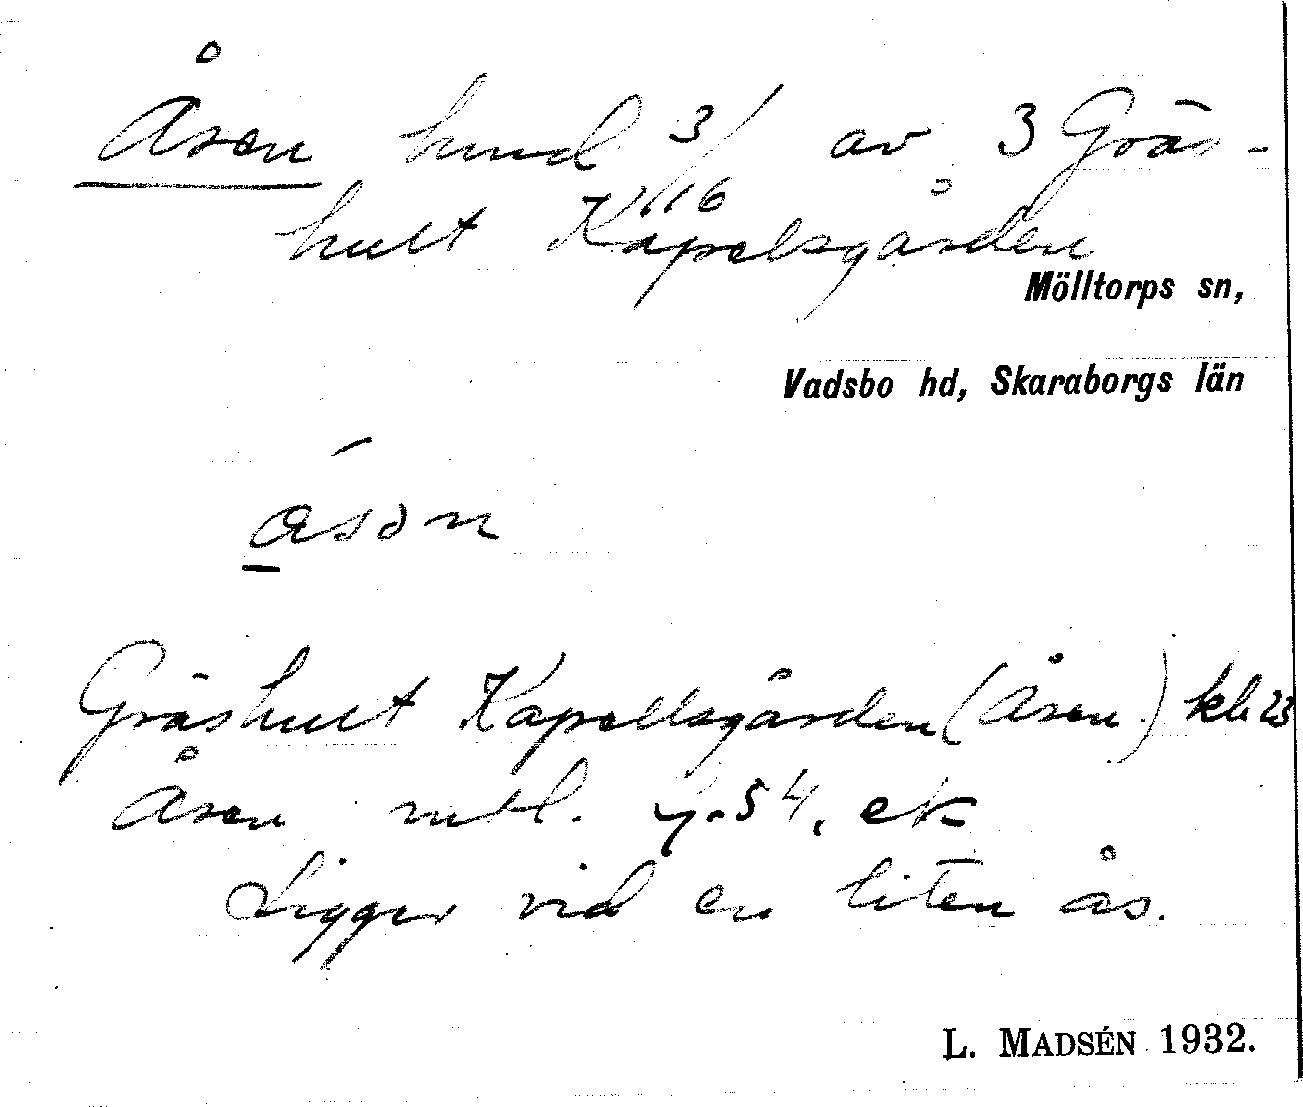 Åsen hmd 3/16 av 3 Gräs-
hult Kapelsgården
Mölltorps sn,
Vadsbo hd, Skaraborgs län
åsən
Gräshult Kapellsgården (Åsen) kb 23
Åsen mtl. y. 54. ek
Ligger vid en liten ås.
L. MADSÉN 1932.